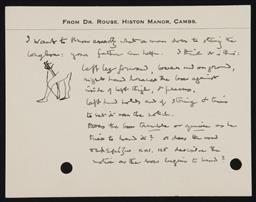 FROM DR. ROUSE, HISTON MANOR, CAMBS.
I want to know exactly what a man does to string the
longbow: your father can tell. I think it is this:
left leg forward, bow end on ground,
right hand braces the bow against
inside of left thigh, & presses,
left hand holds end of string & tries
to get it over the notch.
Does the bow tremble or quiver as he
tries to bend it? or does the word
κ 21. 125 describe the
motion as the bow begins to bend?